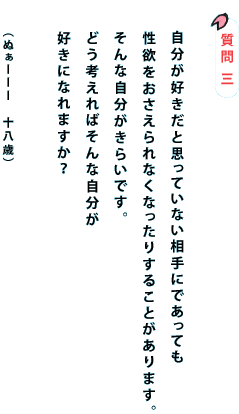 質問 三
自分が好きだと思っていない相手にであっても
性欲をおさえられなくなったりすることがあります。
そんな自分がきらいです。
どう考えればそんな自分が
好きになれますか？
（ぬぁーーー　十八歳）